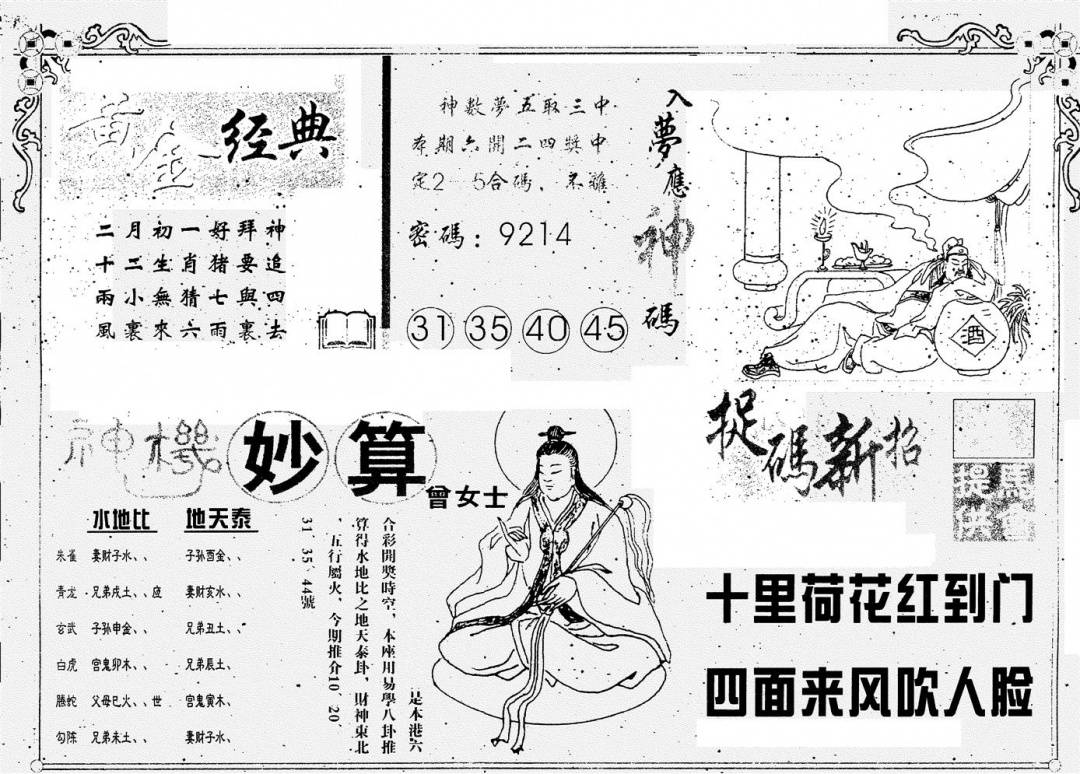 黄金经典
二月初一好拜神
十二生肖猪要追
兩小無猜七與四
風裏來六雨裏去
神數夢五取三中
本期六開二四獎中
定2—5合碼、不離
密碼：9214
31 35 40 45
入夢應神碼
酒
神機妙算
曾女士
水地比 地天泰
朱雀 妻財子水、、 子孙酉金、、
青龙 兄弟戌土、、应 妻財亥水、、
玄武 子孙申金、、 兄弟丑土、、
白虎 官鬼卯木、、 兄弟辰土、
螣蛇 父母巳火、、世 官鬼寅木、
勾陈 兄弟未土、、 妻財子水、
是本港六
合彩開獎時空，本座用易學八卦推
算得水地比之地天泰卦，財神東北
，五行屬火，今期推介10 20
31 35 44號
捉碼新招
馬會
提供
十里荷花红到门
四面来风吹人脸